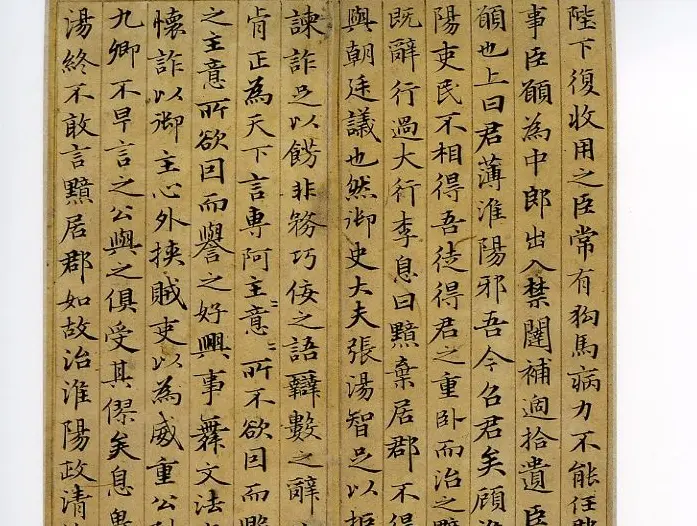 陛下復收用之臣常有狗馬病力不能任
事臣願為中郎出入禁闥補過拾遺臣
願也上曰君薄淮陽邪吾今召君矣顧淮
陽吏民不相得吾徒得君之重臥而治之黯
既辭行過大行李息曰黯棄居郡不得
與朝廷議也然御史大夫張湯智足以拒
諫詐足以餝非務巧佞之語辯數之辭
肯正為天下言專阿主〻意〻所不欲因而毀
之主意所欲因而譽之好興事舞文法
懷詐以御主心外挾賊吏以為威重公列
九卿不早言之公與之俱受其僇矣息畏
湯終不敢言黯居郡如故治淮陽政清